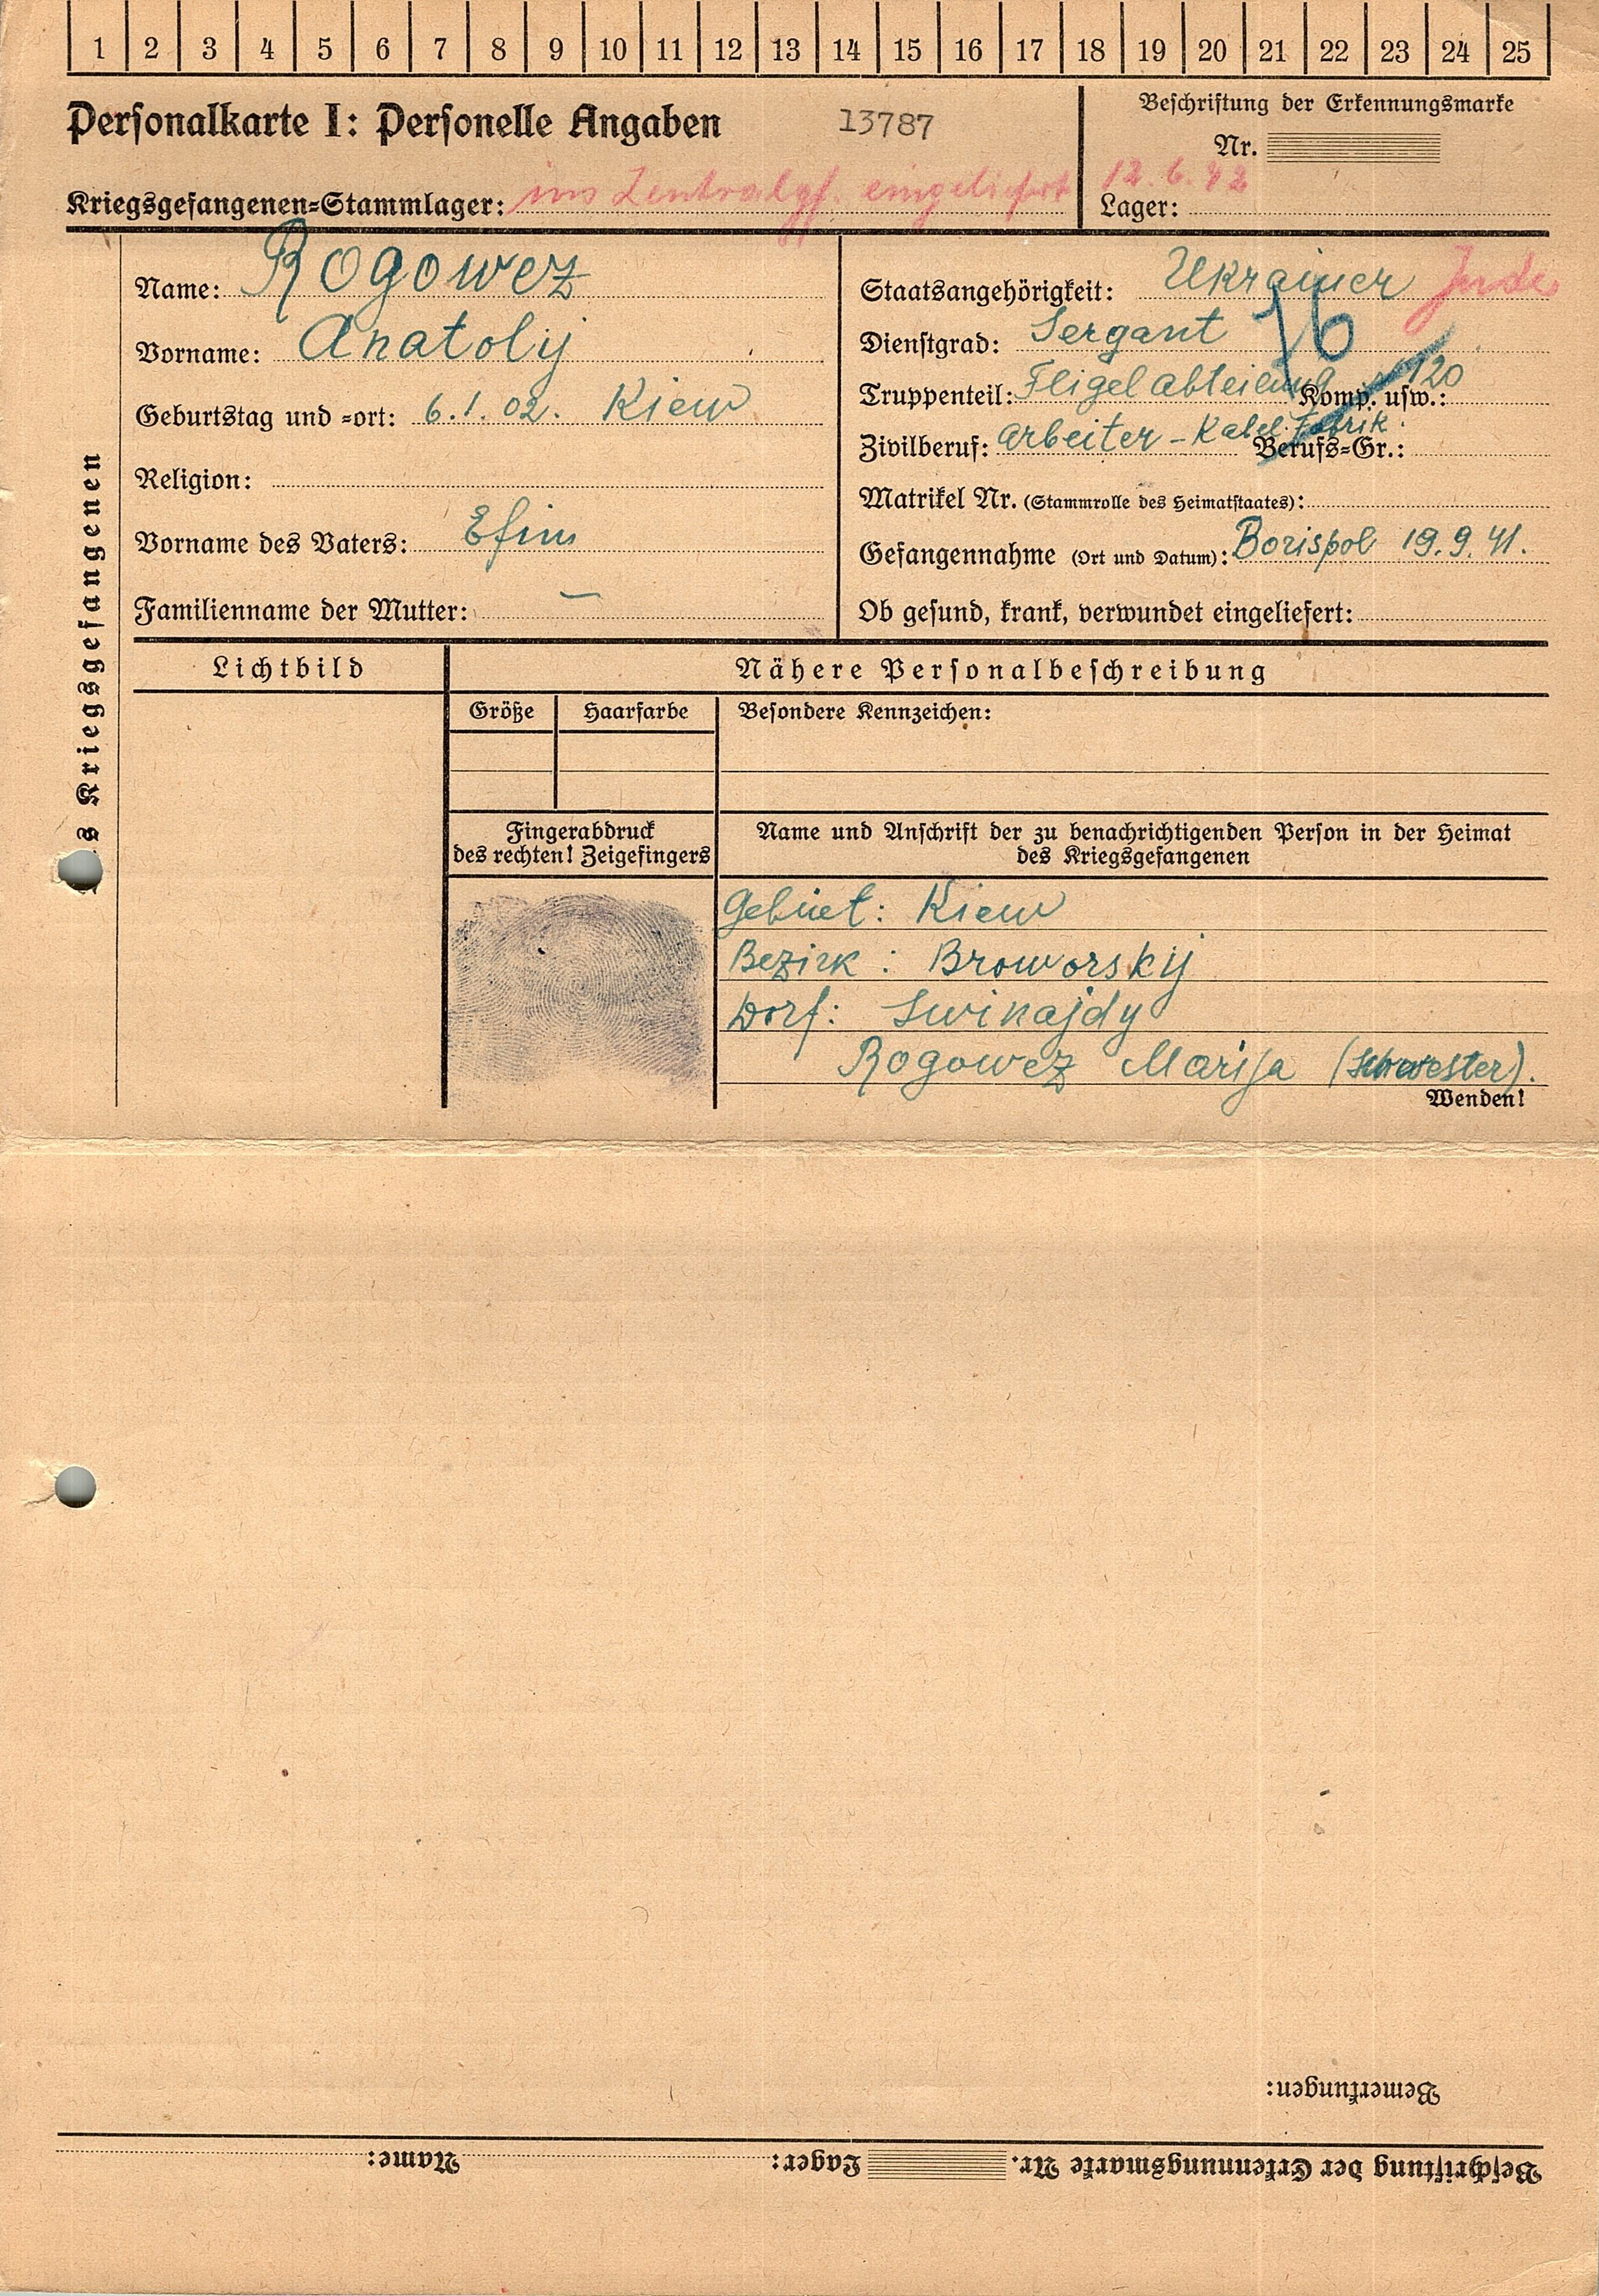 1 2 3 4 5 6 7 8 9 10 11 12 13 14 15 16 17 18 19 20 21 22 23 24 25
Personalkarte I: Personelle Angaben 13787
Beschriftung der Erkennungsmarke
Nr.
Kriegsgefangenen-Stammlager: ins Zentralgf. eingeliefert 12.6.42
Lager:
des Kriegsgefangenen
Name: Rogowez
Vorname: Anatolij
Geburtstag und -ort: 6.1.02. Kiew
Religion:
Vorname des Vaters: Efim
Familienname der Mutter: —
Staatsangehörigkeit: Ukrainer Jude
Dienstgrad: Sergant 16
Truppenteil: Fligelabteilung Komp. usw.: 120
Zivilberuf: Arbeiter - Kabel. Fabrik. Berufs-Gr.:
Matrikel Nr. (Stammrolle des Heimatstaates):
Gefangennahme (Ort und Datum): Borispol 19.9.41.
Ob gesund, krank, verwundet eingeliefert:
Lichtbild
Nähere Personalbeschreibung
Größe Haarfarbe Besondere Kennzeichen:
Fingerabdruck
des rechten! Zeigefingers
Name und Anschrift der zu benachrichtigenden Person in der Heimat
des Kriegsgefangenen
Gebiet: Kiew
Bezirk: Broworskij
Dorf: Swinajdy
Rogowez Marija (Schwester).
Wenden!
Bemerkungen:
Beschriftung der Erkennungsmarke Nr. Lager: Name: